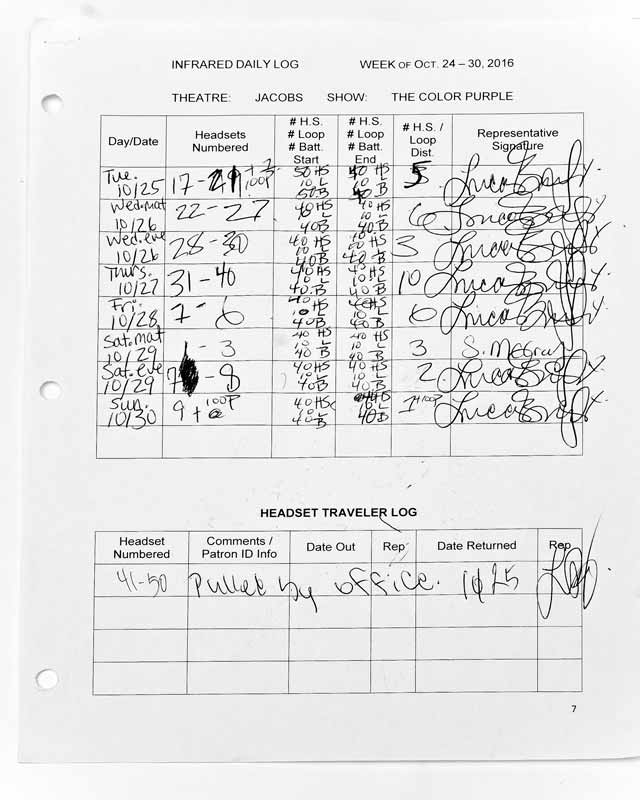 INFRARED DAILY LOG WEEK OF OCT. 24 – 30, 2016
THEATRE: JACOBS SHOW: THE COLOR PURPLE
Day/Date Headsets Numbered # H.S. # Loop # Batt. Start # H.S. # Loop # Batt. End # H.S. / Loop Dist. Representative Signature
Tue. 10/25 17 - 50 HS 10 L 50 B 40 HS 10 L 40 B 5
Wed. mat 10/26 22 - 27 40 HS 10 L 40 B 40 HS 10 L 40 B 6
Wed. eve 10/26 28 - 30 40 HS 10 L 40 B 40 B 3
Thurs. 10/27 31 - 40 40 HS 10 L 40 B 40 HS 10 L 40 B 10
Fri. 10/28 7 - 6 40 HS 10 L 40 B 40 HS 10 L 40 B 6
Sat. mat 10/29 1 - 3 40 HS 10 L 40 B 40 HS 10 L 40 B 3
Sat. eve 10/29 - 8 40 HS 10 L 40 B 40 HS 10 L 40 B 2
Sun. 10/30 9 + 100P 40 HS 10 L 40 B 40 B 1 + 100P
HEADSET TRAVELER LOG
Headset Numbered Comments / Patron ID Info Date Out Rep Date Returned Rep
41-50 Pulled by office. 10/25
7